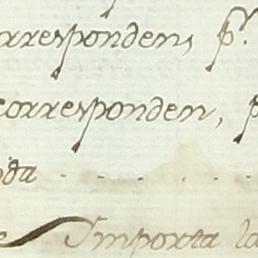 orresponden, p.r
corresponden, p
da
Importa la